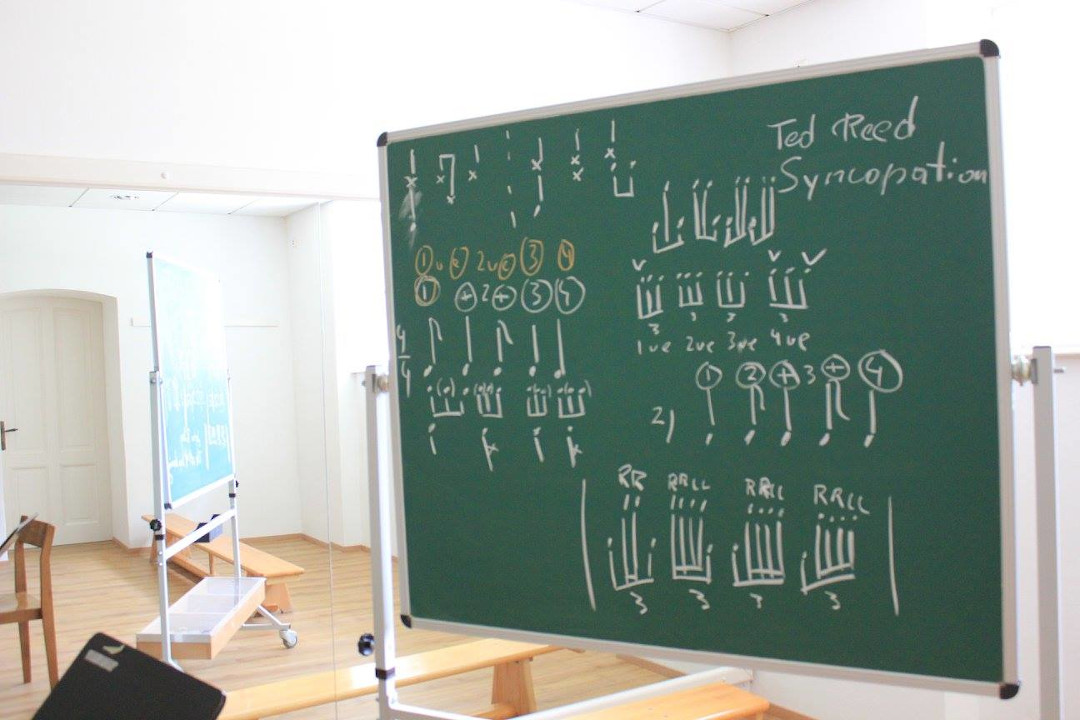 Ted Reed
Syncopation
1 u e 2 u e 3 4
1 + 2 + 3 4
4
4
3 3 3 3
1ue 2ue 3ue 4ue
1 2 + 3 + 4
2)
RR RRLL RRLL RRLL
3 3 3 3